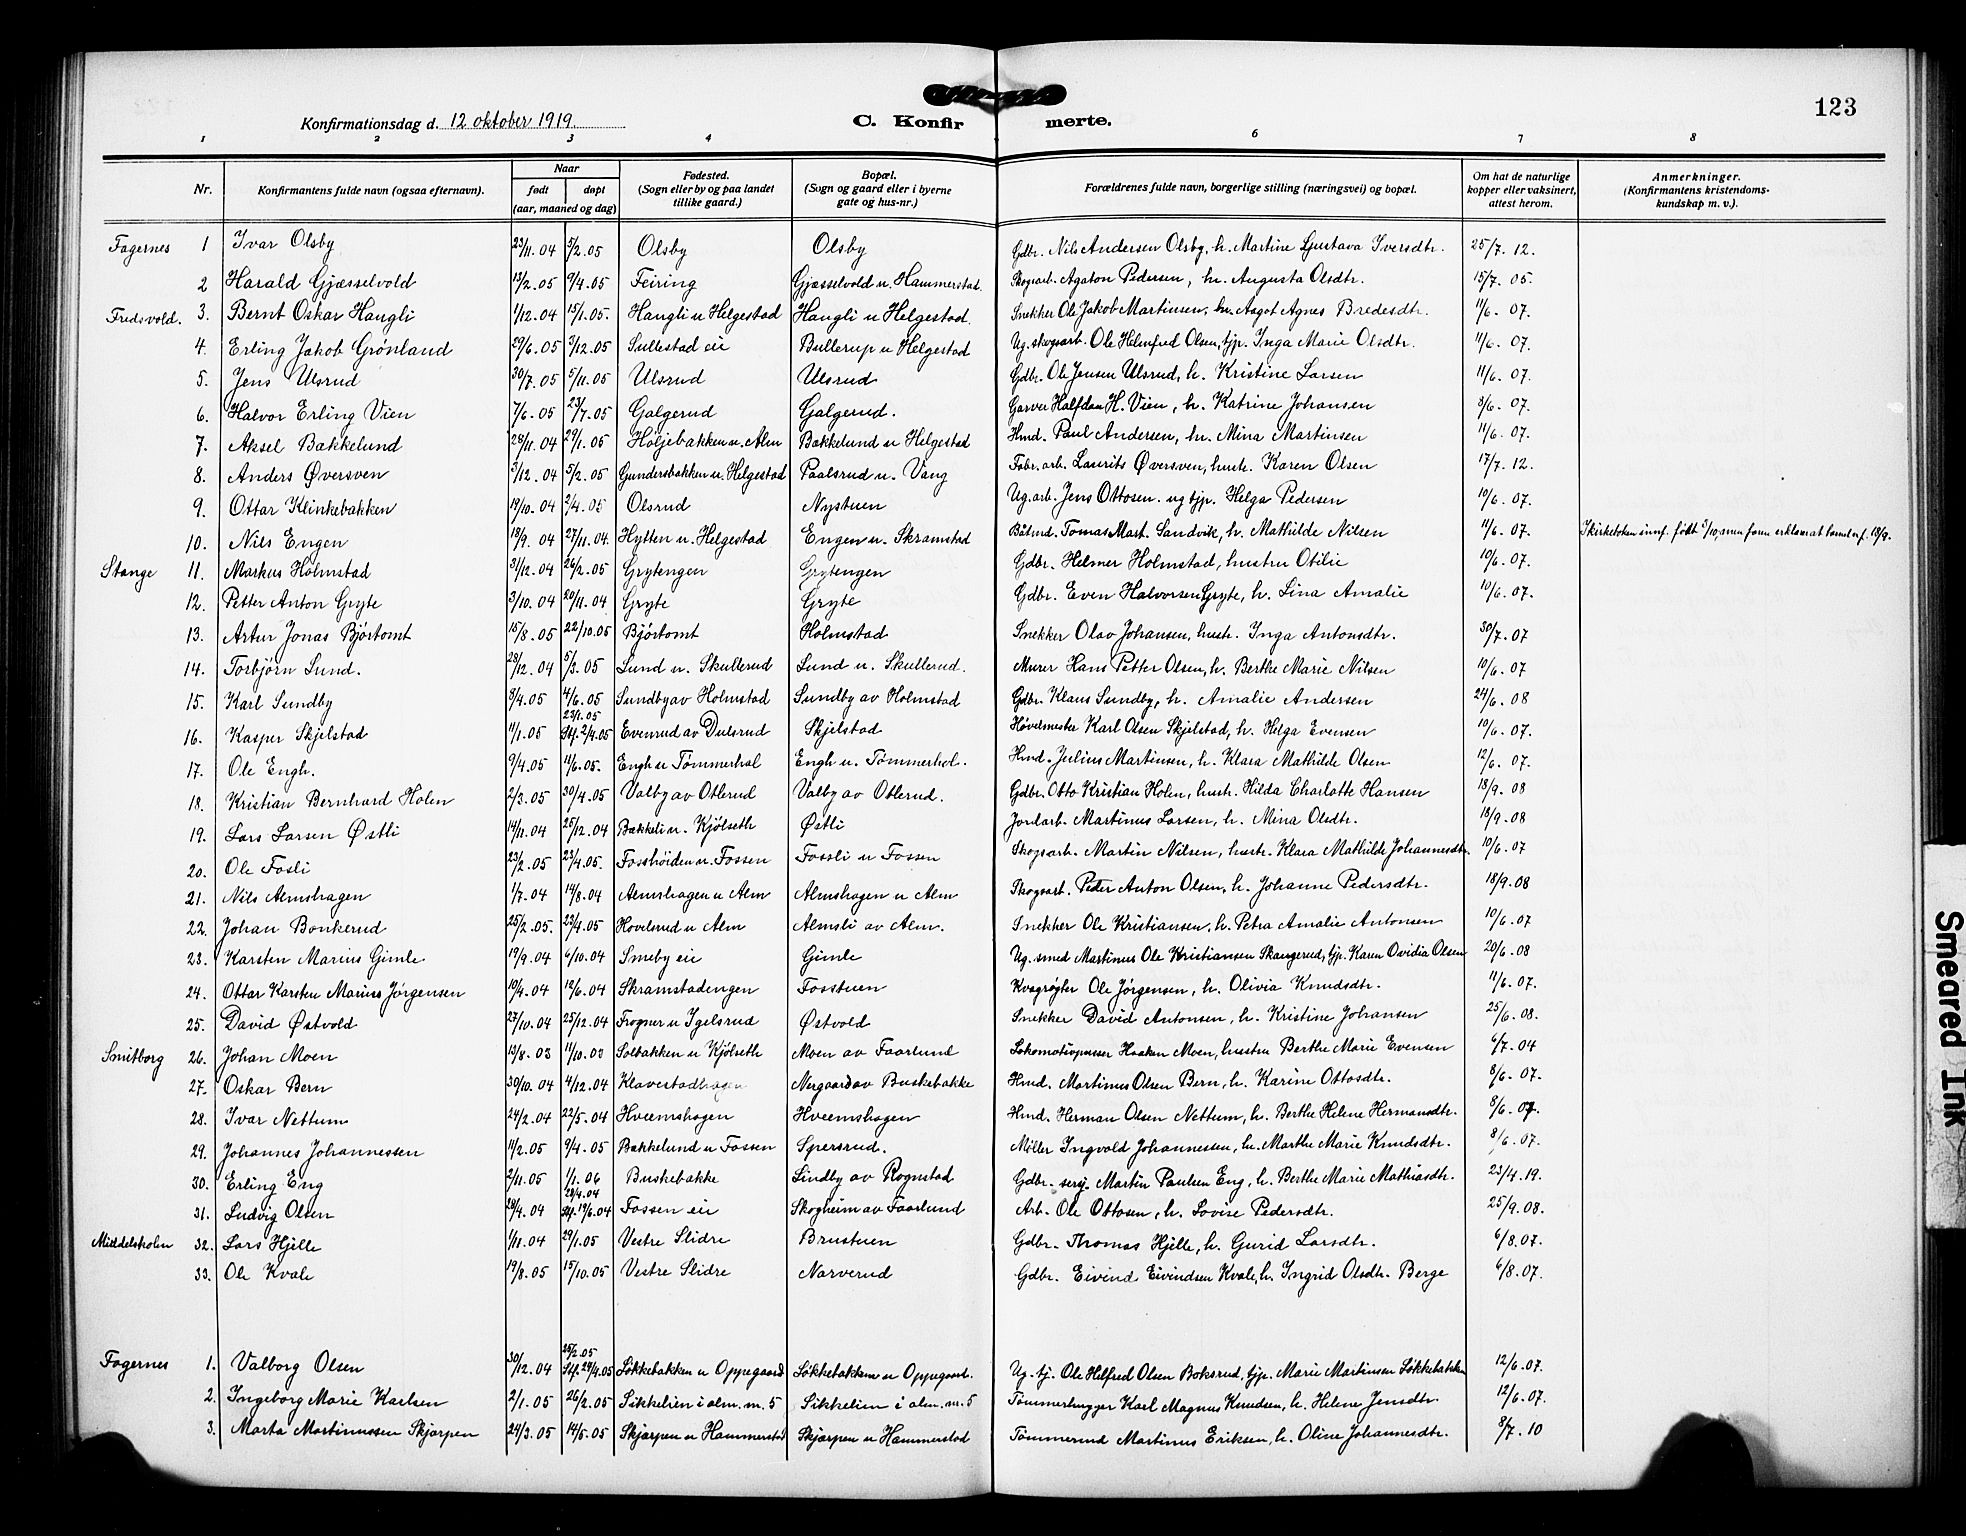 123
Konfirmationsdag d. 12 oktober 1919.
C. Konfirmerte.
1 2 3 4 6 7 8
Nr. Konfirmantens fulde navn (ogsaa efternavn). Naar født døpt (aar, maaned og dag) Fødested. (Sogn eller by og paa landet tillike gaard.) Bopæl. (Sogn og gaard eller i byerne gate og hus-nr.) Forældrenes fulde navn, borgerlige stilling (næringsvei) og bopæl. Om hat de naturlige kopper eller vaksinert, attest herom. Anmerkninger. (Konfirmantens kristendomskundskap m. v.).
Fagernes 1 Ivar Olsby 23/11.04 5/2.05 Olsby Olsby Gdbr. Nils Andersen Olsby, h. Martine Gustava Iversdtr. 25/7.12.
2 Harald Gjæsselvold 13/2.05 9/4.05 Feiring Gjæsselvold u. Hammerstad. Skogsarb. Agaton Pedersen, hu. Augusta Olsdtr. 15/7.05.
Fredsvold. 3. Bernt Oskar Haugli 1/12.04 15/1.05. Haugli u Helgestad Haugli u Helgestad. Snekker Ole Jakob Martinsen, hu. Aagot Agnes Bredesdtr. 11/6.07.
4. Erling Jakob Grønland 29/6.05 3/12.05 Sullestad eie Bullerup u Helgestad Ug. skogsarb. Ole Helmfred Olsen, tjp. Inga Marie Olsdtr. 11/6.07.
5. Jens Ulsrud 30/7.05 5/11.05 Ulsrud Ulsrud Gdbr. Ole Jensen Ulsrud, h. Kristine Larsen 11/6.07.
6. Halvor Erling Vien 7/6.05 23/7.05 Galgerud Galgerud. Garver Halfdan H. Vien, h. Katrine Johansen 8/6.07.
7. Aksel Bakkelund 28/11.04 29/1.05 Høljebakken u. Alm Bakkelund u Helgestad Hmd. Paul Andersen, hu. Mina Martinsen 11/6.07.
8. Anders Øversven 3/12.04 5/2.05 Gundersbakken u. Helgestad Paalsrud u. Vang Fabr. arb. Laurits Øversven, hustr. Karen Olsen 17/7.12.
9. Ottar Klinkebakken 19/10.04 2/4.05 Olsrud Nystuen Ug. arb. Jens Ottosen. ug tjp. Helga Pedersen 10/6.07.
10. Nils Engen 18/9.04 27/11.04. Hytten u. Helgestad Engen u. Skramstad Tomas Mart. Sandvik, h. Mathilde Nilsen 11/6.07.
Stange 11. Markus Holmstad 31/12.04 26/2.05 Grytengen Grytengen Gdbr. Helmer Holmstad, hustru Otilie 10/6.07.
12. Petter Anton Gryte 3/10.04 20/11.04 Gryte Gryte Gdbr. Even Halvorsen Gryte, h. Lina Amalie 10/6.07.
13. Artur Jonas Bjørtomt 15/8.05 22/10.05 Bjørtomt Holmstad Snekker Olav Johansen, hustr. Inga Antonsdtr. 30/7.07
14. Torbjørn Lund. 28/12.04 5/3.05 Lund u. Skullerud Lund u. Skullerud. Murer Hans Petter Olsen, h. Berthe Marie Nilsen 10/6.07
15. Karl Sundby 9/4.05 4/6.05 Sundby av Holmstad Sundby av Holmstad Gdbr. Klaus Sundby, h. Amalie Andersen 24/6.08
16. Kasper Skjelstad 11/1.05 23/1.05 Stf. 2/4.05 Evenrud av Dulsrud Skjelstad Høvelmester Karl Olsen Skjelstad, h. Helga Evensen 10/6.07.
17. Ole Engh. 9/4.05 11/6.05. Engh u Tømmerhol Engh u. Tømmerhol. Hmd. Julius Martinsen, h. Klara Mathilde Olsen 12/6.07.
18. Kristian Bernhard Holen 2/3.05 30/4.05 Valby av Otlerud Valby av Otlerud. Gdbr. Otto Kristian Holen, hustr. Hilda Charlotte Hansen 18/9.08
19. Lars Larsen Østli 14/11.04 25/12.04 Bakkeli u. Kjølseth Østli Jordarb. Martinus Larsen, h. Mina Olsdtr. 18/9.08
20. Ole Fosli 23/2.05 23/4.05. Fosshøiden u. Fossen Fossli u Fossen Skogsarb. Martin Nilsen, hustr. Klara Mathilde Johannesdtr. 10/6.07
21. Nils Almshagen 1/7.04 14/8.04 Almshagen u Alm Almshagen u Alm Skogsarb. Peder Anton Olsen, h. Johanne Pedersdtr. 18/9.08
22. Johan Bonkerud 25/2.05. 23/4.05 Hovelsrud u Alm Almsli av Alm. Snekker Ole Kristiansen, h. Petra Amalie Antonsen 10/6.07
23. Karsten Marius Gimle 19/9.04 6/10.04 Smeby eie Gimle Ug. smed Martinus Ole Kristiansen Skangerud, tjp. Karen Ovidia Olsen 20/6.08
24. Ottar Karsten Marius Jørgensen 10/4.04 12/6.04 Skramstadengen Fosstuen Kvegrøgter Ole Jørgensen, h. Olivia Knudsdtr. 11/6.07.
25. David Østvold 27/10.04 25/12.04 Frogner u Igelsrud Østvold Snekker David Antonsen, h. Kristine Johansen 25/6.08.
Smitborg 26. Johan Moen 13/8.03 11/10.03 Solbakken u Kjølseth Moen av Faarlund Lokomotivpusser Haaken Moen, hustru Berthe Marie Evensen 6/7.04
27. Oskar Bern 30/10.04 4/12.04 Klavestadhagen Nergaard av Buskebakke Hmd. Martinus Olsen Bern, h. Karine Ottosdtr. 8/6.07.
28. Ivar Nettum 24/2.04 22/5.04 Hveemshagen Hveemshagen Hmd. Herman Olsen Nettum, h. Berthe Helene Hermansdtr. 8/6.07.
29. Johannes Johannessen 11/2.05 9/4.05 Bakkelund u Fossen Sørsrud. Møller Ingvold Johannessen, hu. Marthe Marie Knudsdtr. 8/6.07.
30. Erling Eng 2/11.05 1/1.06 Buskebakke Lindby av Rognstad Gdbr. serg. Martin Paulsen Eng, h. Berthe Marie Mathiasdtr. 23/4.19.
31. Ludvig Olsen 26/4.04 28/4.04 Stf. 19/6.04 Fossen eie Skogheim av Faarlund Arb. Ole Ottosen, h. Lovise Pedersdtr. 25/9.08.
Middelskolen 32. Lars Hjelle 1/11.04 29/1.05 Vestre Slidre Brustuen Gdbr. Thomas Hjelle, h. Gurid Larsdtr. 6/8.07.
33. Ole Kvale 19/8.05 15/10.05 Vestre Slidre Narverud Gdbr. Eivind Eivindsen Kvale, h. Ingrid Olsdtr. Berge 6/8.07.
Fagernes 1. Valborg Olsen 30/12.04 25/2.05 Stf. 24/4.05 Løkkebakken u Oppegaard Løkkebakken u Oppegaard. Ug. tj. Ole Hilfred Olsen Boksrud, tjp. Marie Martinsen Løkkebakken 12/6.07.
2. Ingeborg Marie Karlsen 2/1.05 26/2.05 Sikkelien i alm. m. 5 Sikkelien i alm. m. 5 Tømmerhugger Karl Magnus Knudsen, h. Helene Jensdtr. 12/6.07.
3. Marta Martinussen Skjærpen 24/3.05 14/5.05 Skjærpen u Hammerstad Skjærpen u Hammerstad Tømmermd Martinus Eriksen, h. Oline Johannesdtr. 8/7.10
Smeared Ink